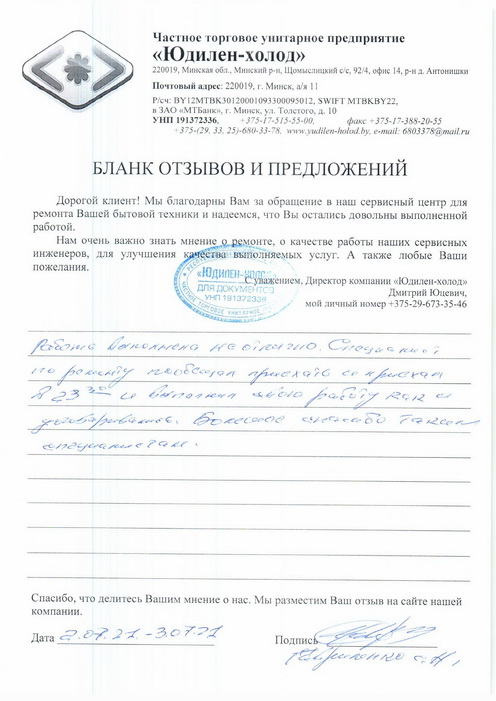 Частное торговое унитарное предприятие
«Юдилен-холод»
220019, Минская обл., Минский р-н, Щомыслицкий с/с, 92/4, офис 14, р-н д. Антонишки
Почтовый адрес: 220019, г. Минск, а/я 11
Р/сч: BY12MTBK30120001093300095012, SWIFT MTBKBY22,
в ЗАО «МТБанк», г. Минск, ул. Толстого, д. 10
УНП 191372336, +375-17-515-55-00, факс +375-17-388-20-55
+375-(29, 33, 25)-680-33-78, www.yudilen-holod.by, e-mail: 6803378@mail.ru
БЛАНК ОТЗЫВОВ И ПРЕДЛОЖЕНИЙ
Дорогой клиент! Мы благодарны Вам за обращение в наш сервисный центр для
ремонта Вашей бытовой техники и надеемся, что Вы остались довольны выполненной
работой.
Нам очень важно знать мнение о ремонте, о качестве работы наших сервисных
инженеров, для улучшения качества выполняемых услуг. А также любые Ваши
пожелания.
С уважением, Директор компании «Юдилен-холод»
Дмитрий Юцевич,
мой личный номер +375-29-673-35-46
«ЮДИЛЕН-ХОЛОД»
ДЛЯ ДОКУМЕНТОВ
УНП 191372336
Работа выполнена на отлично. Специалист
по ремонту пообещал приехать и приехал
в 23 30 и выполнил свою работу как и
договаривались. Большое спасибо таким
специалистам.
Спасибо, что делитесь Вашим мнение о нас. Мы разместим Ваш отзыв на сайте нашей
компании.
Дата 2.07.21 - 3.07.21 Подпись